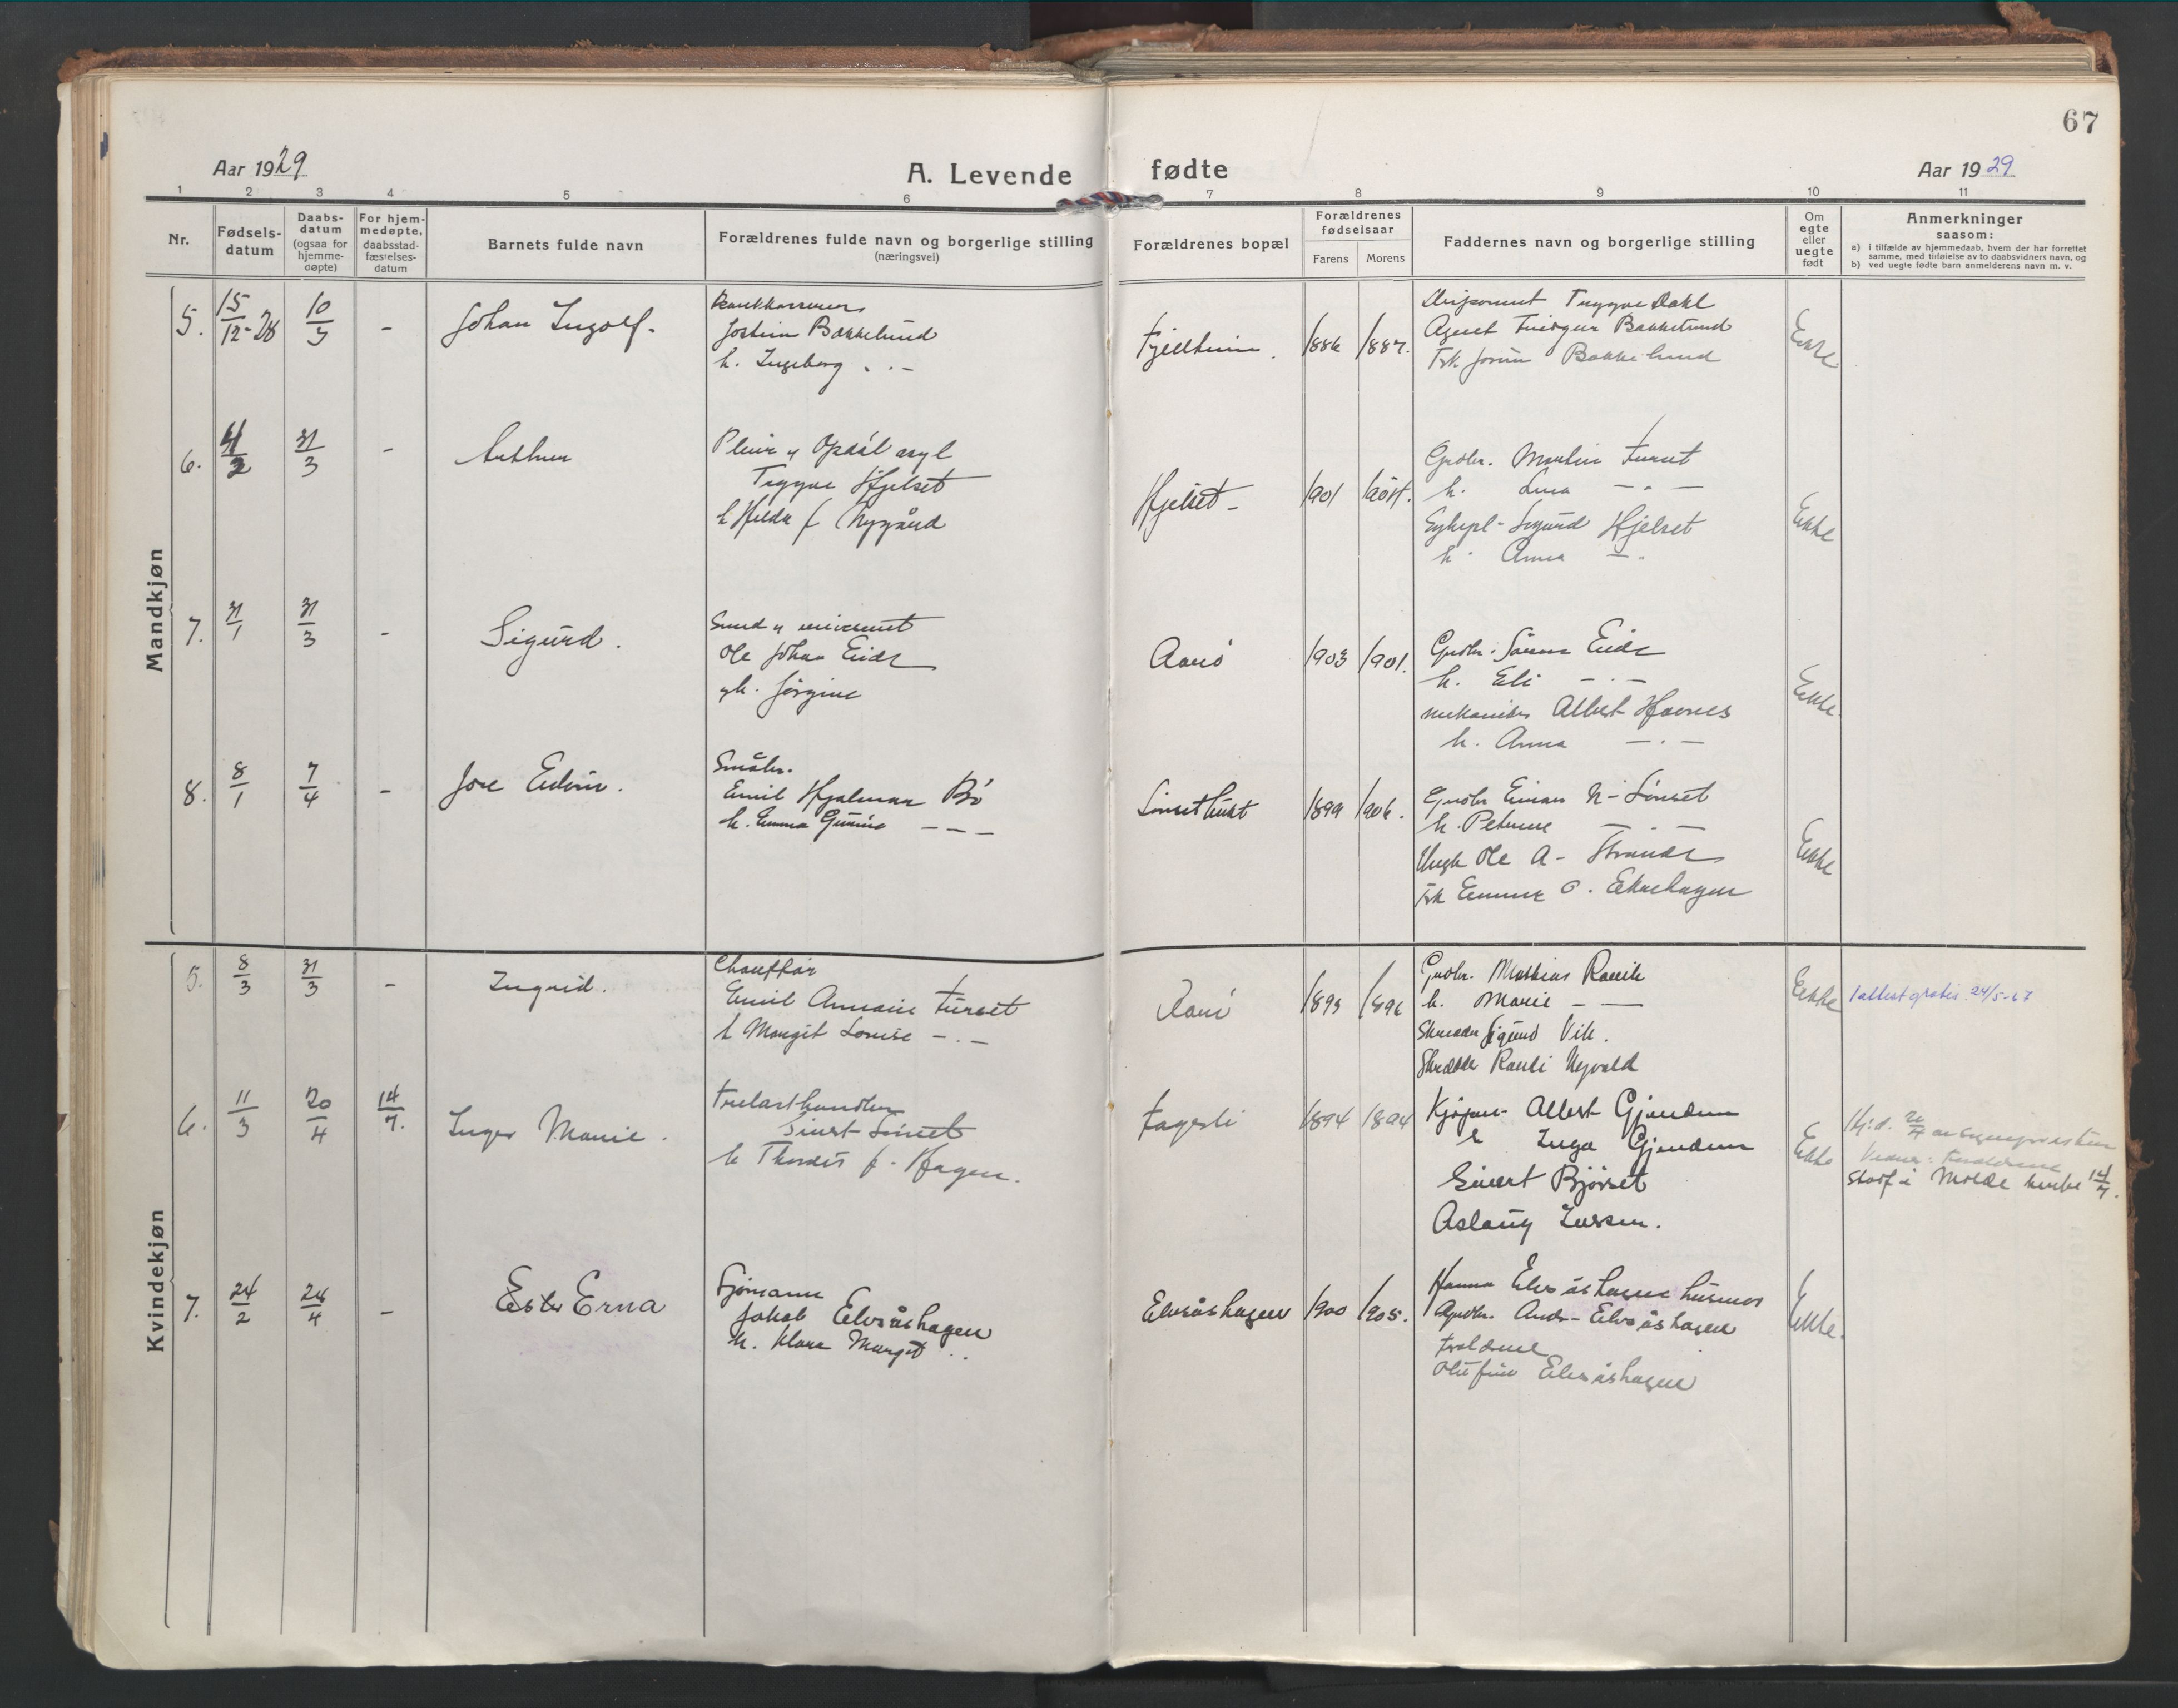 67
Aar 1929
A. Levende fødte
Aar 1929
1 2 3 4 5 6 7 8 9 10 11
Nr.
Fødsels-
datum
Daabs-
datum
(ogsaa for
hjemme-
døpte)
For hjem-
medøpte,
daabsstad-
fæstelses-
datum
Barnets fulde navn
Forældrenes fulde navn og borgerlige stilling
(næringsvei)
Forældrenes bopæl
Forældrenes
fødselsaar
Farens Morens
Faddernes navn og borgerlige stilling
Om
egte
eller
uegte
født
Anmerkninger
saasom:
a) i tilfælde av hjemmedaab, hvem der har forrettet
samme, med tilføielse av to daabsvidners navn, og
b) ved uegte fødte barn anmelderens navn m. v.
Mandkjøn
5. 15/12-28 10/3 - Johan Ingolf.
Bankkasserer
Jostein Bakkelund
h. Ingeborg . . -
Fjellheim. 1886 1887.
Disponent Trygve Dahl
Agent Bakkelund
Frk Bakkelund
Ekte
6. 4/2 31/3 - Arthur
Pleier v Opdøl asyl
Trygve Hjelset
h Hilda f Nygård
Hjelset - 1901
Grdbr. Martin Furset
h. Lina - " -
Sykepl- Sigurd Hjelset
h. Anna - .
Ekte
7. 31/1 31/3 - Sigurd.
Smed v
Ole Johan Eide
h. Jørgine
Aarø 1903 1901.
Grdbr. Eide
h. Eli - . -
mekaniker Albert Hovnes
h. Anna - . -
Ekte.
8. 8/1 7/4 - Jon Edvin.
Småbr.
Emil Hjalmar Bø
h. Emma - - -
1899 1906.
Grdbr Einar N- Lønset
h. Petrine - . -
Ungk Ole A- Strande
Frk Emma O.
Ekte
Kvindekjøn
5. 8/3 31/3 - Ingrid.
Chauffør
Emil Furset
h Margit Louise - . -
Aarø 1893 1896
Grdbr. Mathias Ranvik
h. Marie - -
Sigurd Vik.
Nyvold
Ekte
1 attest gratis 24/5-67
6. 11/3 20/4 14/7. Inger Marie.
Trelasthandler
Sivert Lønset
h Thordis f. Hagen.
Fagerli 1894 1894
Kjøpm- Albert Gjendem
h Inga Gjendem
Sivert Bjørset
Aslaug Larsen.
Ekte
Hj.d. 20/4
stadf i Molde kirke 14/7.
7. 24/2 28/4 - Ester Erna
Sjømann
Jakob Elvsåshagen
h. Klara Margit . .
Elvsåshagen 1900 1905.
Hanna Elvsåshagen husmor
Grdbr. Andr- Elvsåshagen
Foreldrene
Olufine Elvsåshagen
Ekte.